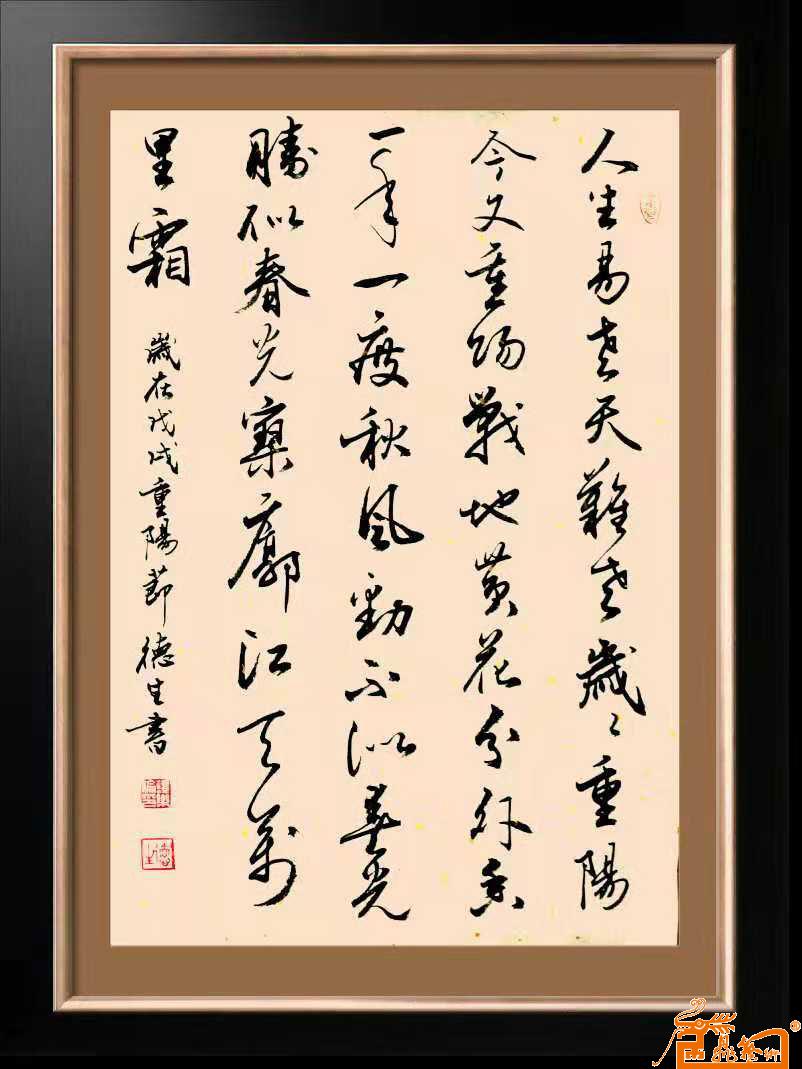 人生易老天難老歲〻重陽
今又重陽戰地黄花分外香
一年一度秋風勁不似春光
勝似春光寥廓江天萬
里霜
歲在戊戌重陽節德生書